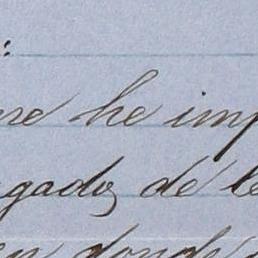 :
se he imp
gados de le
en donde